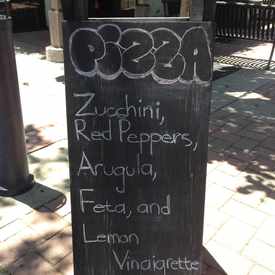 PIZZA
Zucchini,
Red Peppers,
Arugula,
Feta, and
Lemon
Vinaigrette